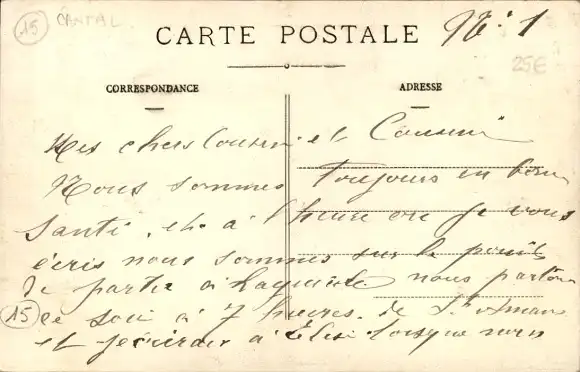 15 CANTAL
CARTE POSTALE No. 1
25€
CORRESPONDANCE ADRESSE
Mes chers Cousin et Cousine
Nous sommes toujours en bonne
Santé, et à l'heure ou je vous
écris nous sommes sur le point
de partir à nous partons
15 ce soir à 7 heures de St Amans
et j'écrirai à Elisé lorsque nous